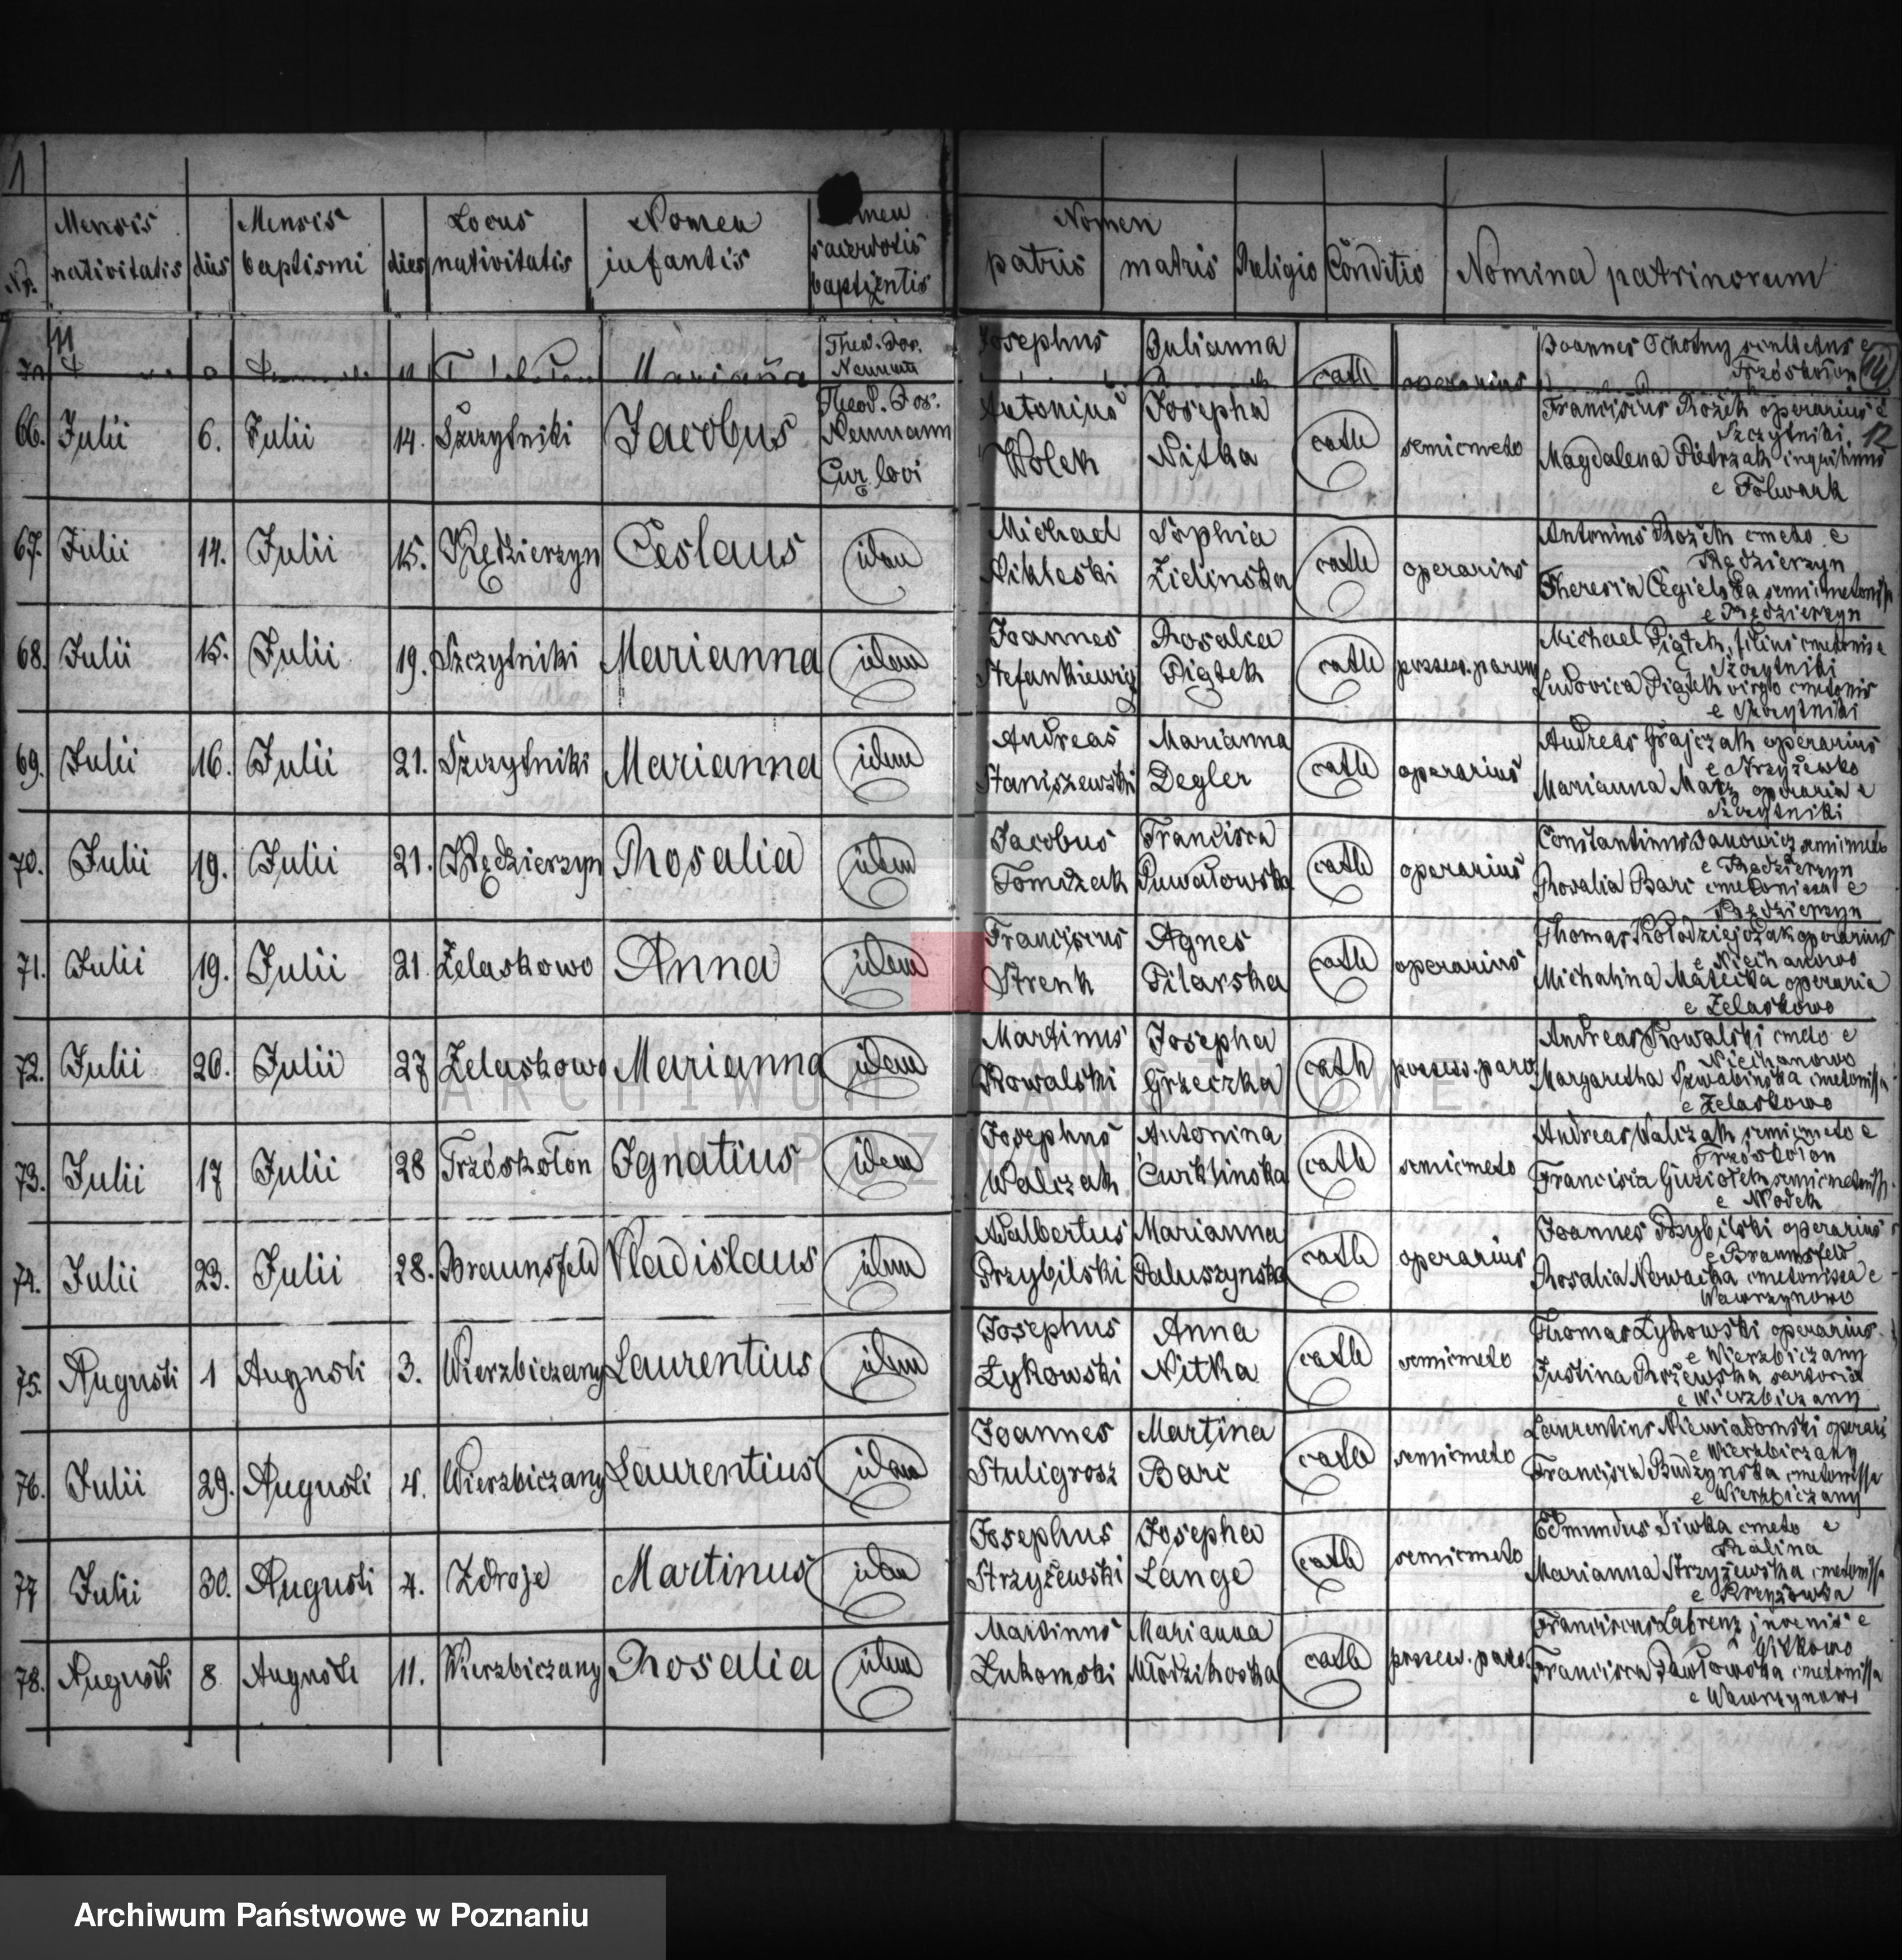 Nr.
Mensis nativitatis
dies
Mensis baptismi
dies
Locus nativitatis
Nomen infantis
sacerdotis baptizentis
Nomen
patris
matris
Religio
Conditio
Nomina patrinorum
Mariana
Theod. Jos.
Josephus
Julianna
cath
operarius
Joannes Ochotny scultetus e
Trzóskołon
12
66. Julii 6. Julii 14. Szczytniki Jacobus Theod. Jos. Neumann Cur. loci
Antonius Wolek
Josepha Nitka
cath
semicmeto
Franciscus Rożek operarius e
Szczytniki.
Magdalena Pietrzak inquilinus
e Folwark
67. Julii 14. Julii 15. Kędzierzyn Česlaus idem
Michael Nikleski
Sophia Zielinska
cath
operarius
Antonius Rożek cmeto e
Kędzierzyn
Theresia Cegielska semicmetonissa
e Kędzierzyn
68. Julii 15. Julii 19. Szczytniki Marianna idem
Joannes Stefankiewicz
Rosalia Piątek
cath
possess. parvus
Michael Piątek, filius cmetonis e
Szczytniki
Ludovica Piątek virgo cmetonis
e Szczytniki
69. Julii 16. Julii 21. Szczytniki Marianna idem
Andreas Staniszewski
Marianna Degler
cath
operarius
Andreas Grajczak operarius
e Strzyżewko
Marianna Marz operaria e
Szczytniki
70. Julii 19. Julii 21. Kędzierzyn Rosalia idem
Jacobus Tomczak
Francisca Puwałowska
cath
operarius
Constantinus Janowicz semicmeto
e Kędzierzyn
Rosalia Barc cmetonissa e
Kędzierzyn
71. Julii 19. Julii 21 Żelaskowo Anna idem
Franciscus Strenk
Agnes Pilarska
cath
operarius
Thomas Kołodziejczak operarius
e Niechanowo
Michalina Małecka operaria
e Żelaskowo
72. Julii 26. Julii 27 Żelaskowo Marianna idem
Martinus Kowalski
Josepha Grzeczka
cath
possess. parv.
Andreas Kowalski cmeto e
Niechanowo
Margaretha Szwabinska cmetonissa
e Żelaskowo
73. Julii 17 Julii 28 Trzóskołon Ignatius idem
Josephus Walczak
Antonina Cwiklinska
cath
semicmeto
Andreas Walczak semicmeto e
Trzóskołon
Francisca Guziołek semicmetonissa
e Modek
74. Julii 23. Julii 28. Braunsfeld Vladislaus idem
Adalbertus Przybilski
Marianna Paluszynska
cath
operarius
Joannes Przybilski operarius
e Braunsfeld
Rosalia Nowacka cmetonissa e
Wawrzynowo
75. Augusti 1 Augusti 3. Wierzbiczany Laurentius idem
Josephus Łykowski
Anna Nitka
cath
semicmeto
Thomas Łykowski operarius
e Wierzbiczany
Justina Rożewska sartorix
e Wierzbiczany
76. Julii 29. Augusti 4. Wierzbiczany Laurentius idem
Joannes Stuligrosz
Martina Barc
cath
semicmeto
Laurentius Niewiadomski operari
e Wierzbiczany
Francisca Budzynska cmetonissa
e Wierzbiczany
77 Julii 30. Augusti 4. Zdroje Martinus idem
Josephus Strzyżewski
Josepha Lange
cath
semicmeto
Edmundus Siwka cmeto e
Kalina
Marianna Strzyżewska cmetonissa
e Krzyżówka
78. Augusti 8 Augusti 11. Wierzbiczany Rosalia idem
Martinus Łukomski
Marianna Młodzikoska
cath
possess. parv.
Franciscus Labrenz juvenis e
Witkowo
Francisca Pawłowska cmetonissa
e Wawrzynowo
ARCHIWUM PAŃSTWOWE
W POZNANIU
Archiwum Państwowe w Poznaniu